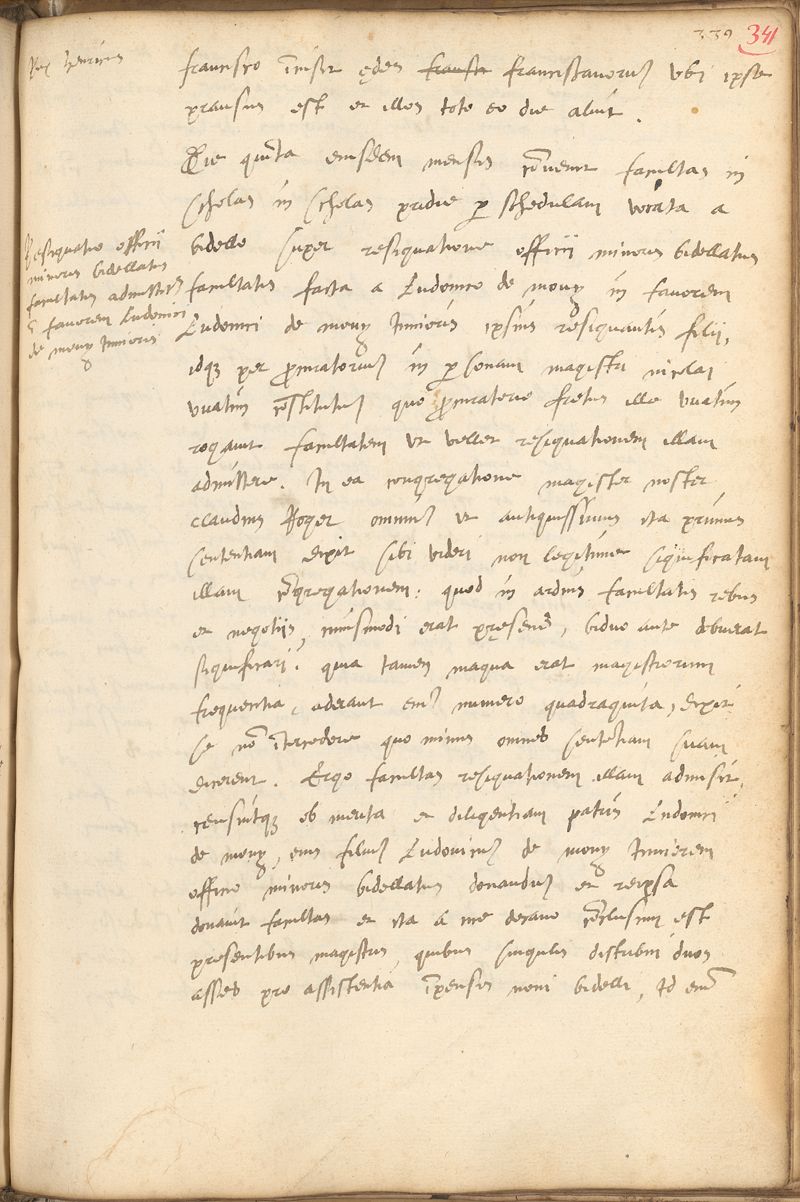 339 341
Rex henricus
francisco invisit ędes franscis franciscanorum ubi ipse
pransus est et illos toto eo die aluit.
Die quinta eiusdem mensis convenit facultas in
scholas in scholas pridie per schedulam vocata a
bidello super resignatione officii minoris bidellatus
facultatis facta a Ludovico de mouy in favorem
Ludovici de mouy Iunioris ipsius resignantis filii,
idque per procuratorium in personam magistri nicolai
vuatin constitutum quo procuratorio fretus ille vuatin
rogavit facultatem ut vellet resignationem illam
admittere. In ea congregatione magister noster
claudius Roger omnium ut antiquissimus ita primus
sententiam dixit sibi videri non legitime significatam
illam congregationem: quod in arduis facultatis rebus
et negotiis, cuiusmodi erat pręsens, biduo ante debuerat
significari: quia tamen magna erat magistrorum
frequentia, aderant enim numero quadraginta, dixit
se non intercedere quo minus omnes sententiam suam
dicerent. Ergo facultas resignationem illam admisit,
censuitque ob merita et diligentiam patris Ludovici
de mouy, eius filium Ludovicum de mouy Iuniorem
officio minoris bidellatus donandum et reipsa
donavit facultas et ita a me decano conclusum est
presentibus magistris, quibus singulis distribui duos
asses pro assistentia impensis novi bidelli, id enim
Resignatio officii
minoris bidellatus
facultatis admissa
in favorem Ludovici
de mouy Iunioris